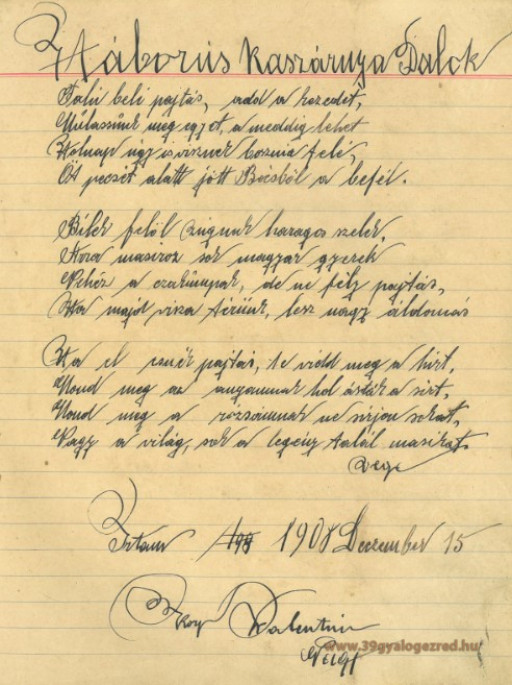 Háborús Kaszárnya Dalok
Falú beli pajtás, add a kezedet,
Múlassünk meg egyet, a meddig lehet
Holnap úgy is visznek bosznia felé,
Öt pecsét alatt jött Bécsből a befél.
felöl zúgnak haragos szelek,
masiroz sok magyar gyerek
Nehéz a czakúnpak, de ne félj pajtás,
Ha majd visza térünk, lesz nagy áldomás
Ha el esnék pajtás, te vidd meg a hirt,
Mond meg az anyamnak hol ásták a sirt,
Mond meg a rozsámnak ne sirjon sokat,
Nagy a világ, sok a legény talál masikat.
Vége
Irtam 1908 Dezember 15
Valentin
www.39gyalogezred.hu